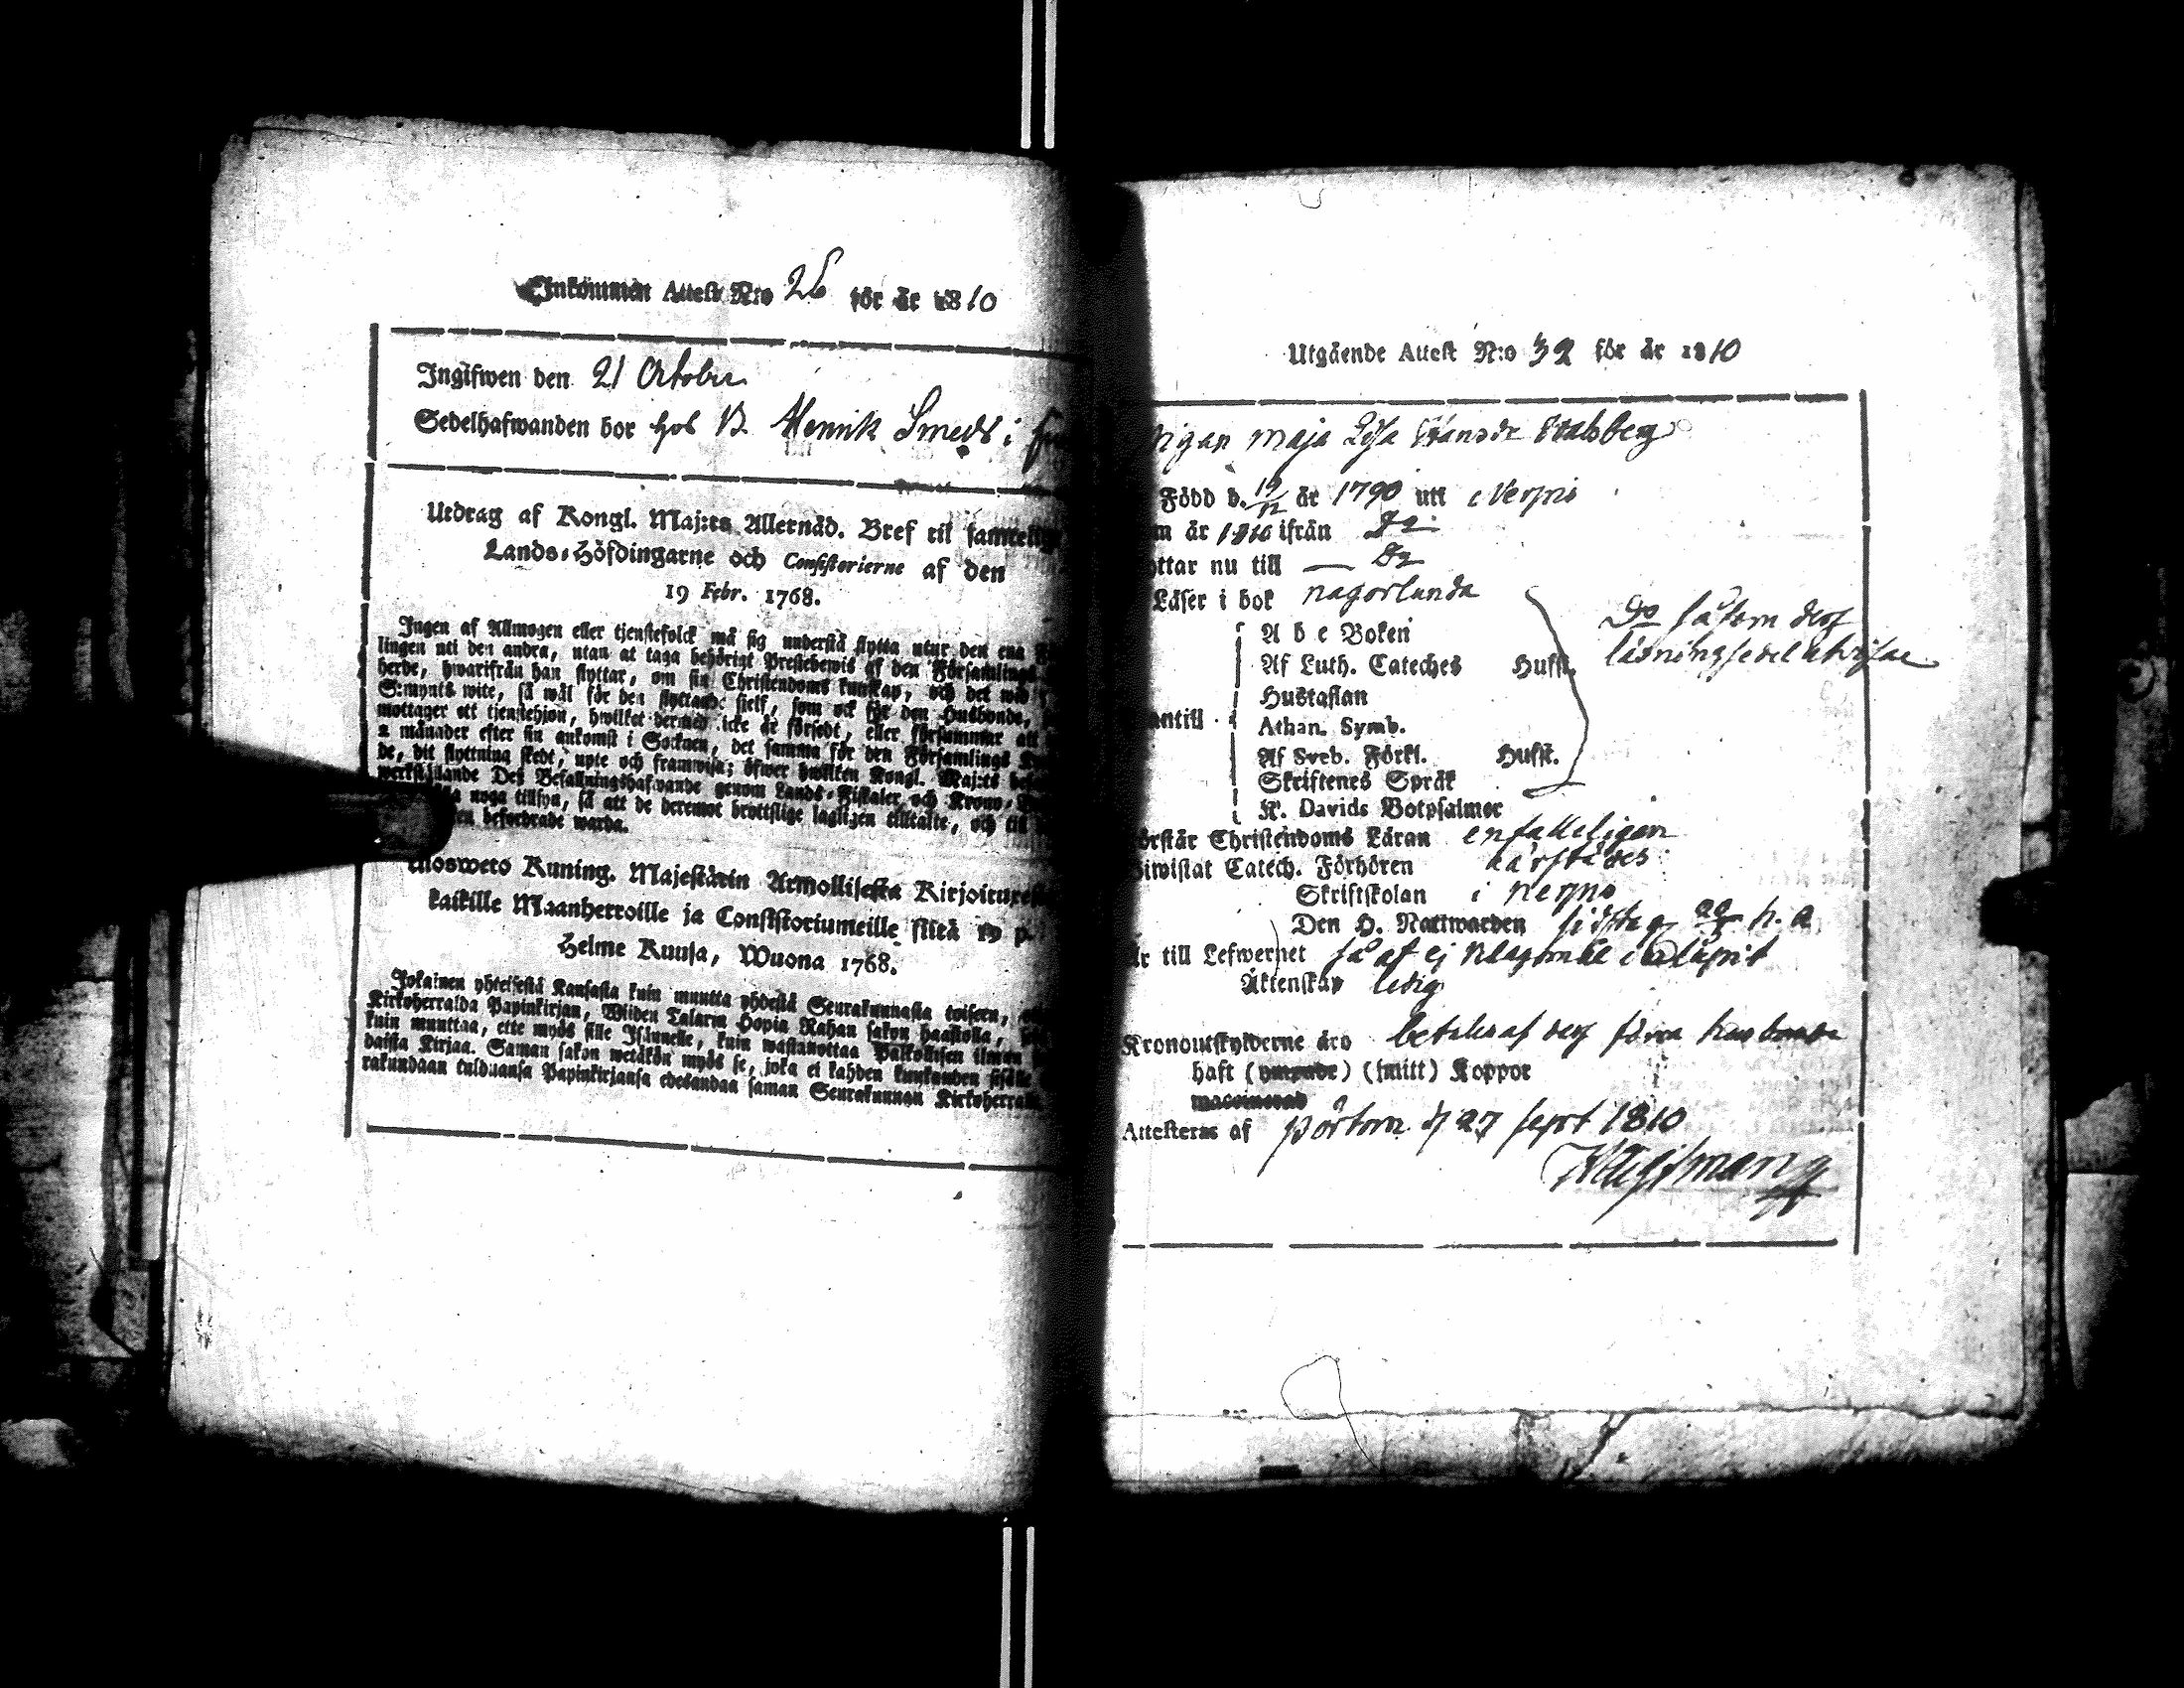 Inkommen Attest N:o 26 för år 1810
Ingifwen den 21 October
Sedelhafwanden bor hos B. Henrik Smeds i
Utdrag af Kongl. Maj:ts Allernåd. Bref til samtelige
Lands-Höfdingarne och Consistorierne af den
19 Febr. 1768.
Ingen af Allmogen eller tjenstefolck må sig understå flytta utur den ena
lingen uti den andra, utan at taga behörigt Prestebewis af den Församlings
herde, hwarifrån han flyttar, om sin Christendoms kunskap, och det wid
S:mynts wite, så wäl för den flyttande sielf, som ock för den Husbonde,
mottager ett tjenstehjon, hwilket dermed icke är försedt, eller försummar att
2 månader efter sin ankomst i Socknen, det samma för den Församlings
de, dit flyttning skedt, upte och framwisa; öfwer hwilken Kongl. Maj:ts
werkställande Des Befallningshafwande genom Lands-Fiskaler och Krono-
noga tillsyn, så att de deremot brottslige lagligen tilltalte, och till
befordrade warda.
Ulosweto Kuning. Majestätin Armollisesta Kirjoituxesta
kaikille Maanherroille ja Consistoriumeille siitä 19 p.
Helme Kuusa, Wuona 1768.
Jokainen yhteisestä Kansasta kuin muutta yhdestä Seurakunnasta toiseen,
Kirkoherralda Papinkirjan, Wiiden Talarin Hopia Rahan sakon haastolla,
kuin muuttaa, ette myös sille Isännelle, kuin wastanottaa Palkollisen ilman
daista Kirjaa. Saman sakon wetäkön myös se, joka ei kahden kuukauden sisälle
rakundaan tulduansa Papinkirjansa edesandaa saman Seurakunnan Kirkoherralle
Utgående Attest N:o 32 för år 1810
Pigan Maja Lisa Hansdr Stalsberg
Född d. 19/12 år 1790 uti Nerpis
år 1810 ifrån Do
flyttar nu till Do
Läser i bok någorlunda
A b c Boken
Af Luth. Cateches Husf.
Hustaflan
antill Athan. Symb.
Af Sveb. Förkl. Husf.
Skriftenes Språk
K. Davids Botpsalmer
Do såsom dess
läsningssedel utwisar
förstår Christendoms Läran enfalleligen
biwistat Catech. Förhören härstädes
Skriftskolan i Nerpis
Den H. Nattwarden sidst
är till Lefwernet så at ej
Äktenskap ledig
Kronoutskylderne äro betalas af dess förra husbonde
haft (ympade) (smitt) Koppor
vaccinerad
Attesterar af Pörtom d 27 Sept 1810